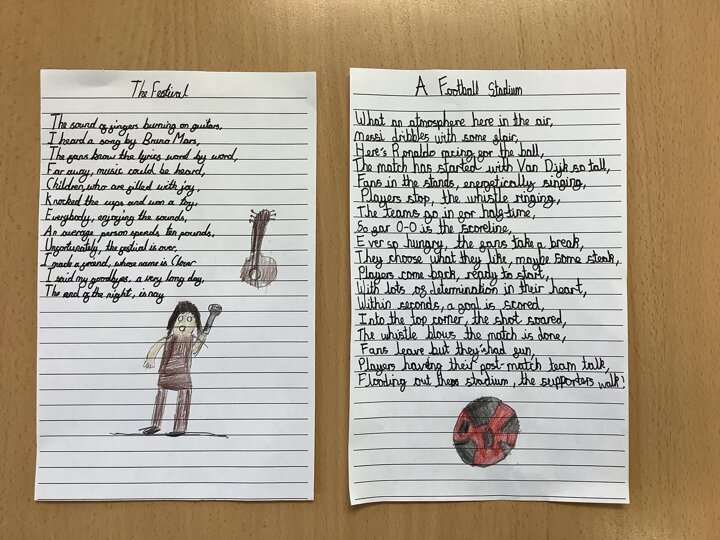 The Festival
The sound of fingers burning on guitars,
I heard a song by Bruno Mars,
The fans know the lyrics word by word,
Far away, music could be heard,
Children, who are filled with joy,
Knocked the cups and won a toy,
Everybody, enjoying the sounds,
An average person spends ten pounds,
Unfortunately, the festival is over,
I made a friend, whose name is Clover
I said my goodbyes, a very long day,
The end of the night, is
A Football Stadium
What an atmosphere here in the air,
Messi dribbles with some flair,
Here's Ronaldo racing for the ball,
The match has started with Van Dijk so tall,
Fans in the stands, energetically singing,
Players stop, the whistle ringing,
The teams go in for half-time,
So far 0-0 is the scoreline,
Ever so hungry, the fans take a break,
They choose what they like, maybe some steak,
Players come back, ready to start,
With lots of determination in their heart,
Within seconds, a goal is scored,
Into the top corner, the shot soared,
The whistle blows the match is done,
Fans leave but they've had fun,
Players having their post-match team talk,
Flooding out the stadium, the supporters walk!